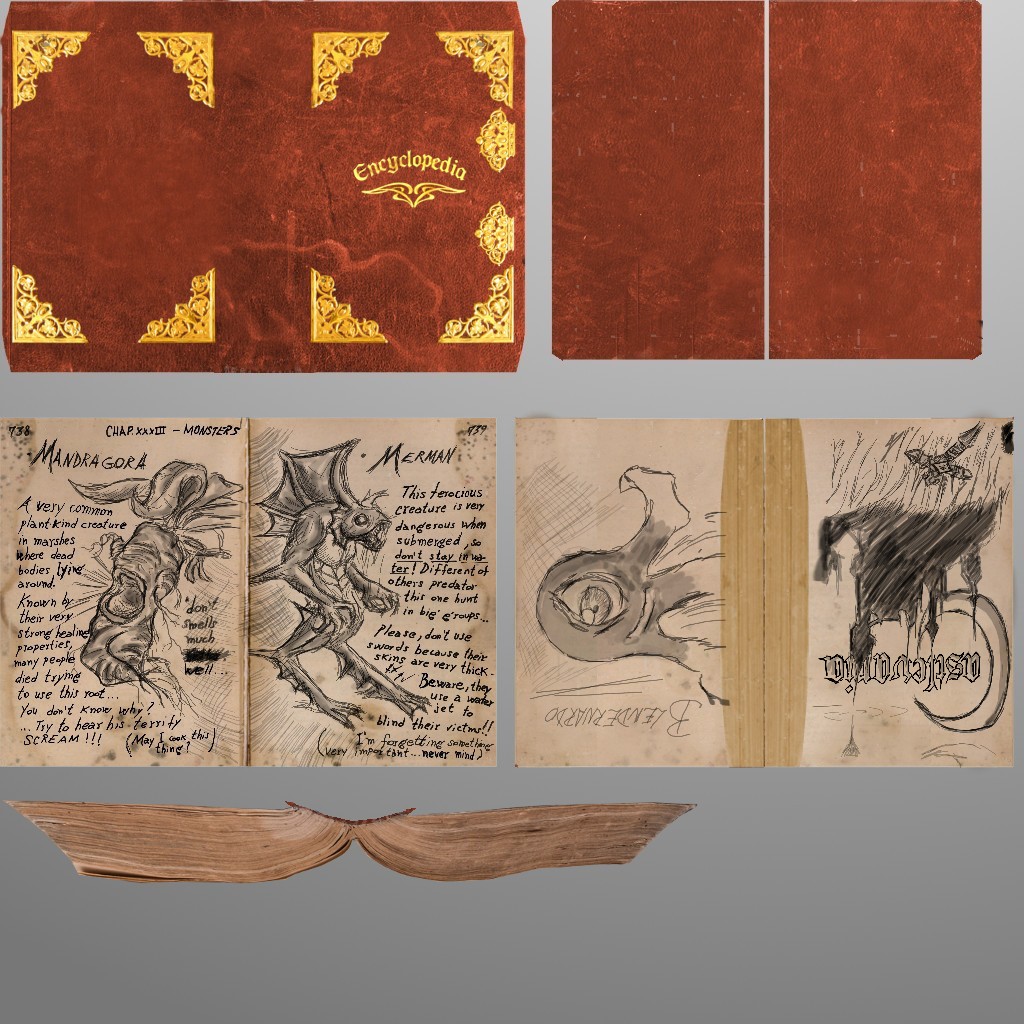 Encyclopedia
738
CHAP. XXXIII – MONSTERS
MANDRAGORA
A very common
plant-kind creature
in marshes
where dead
bodies lying
around.
Known by
their very
strong healing
properties,
many people
died trying
to use this root...
You don't know why?
... Try to hear his terrify
SCREAM !!!
don't
smells
much
well...
(May I cook this
thing?)
739
MERMAN
This ferocious
creature is very
dangerous when
submerged, so
don't stay in wa-
ter! Different of
others predator
this one hunt
in big groups...
Please, don't use
swords because their
skins are very thick.
Beware, they
use a water
jet to
blind their victms!!
(I'm forgetting something
very important...never mind)
BLENDERNARDO